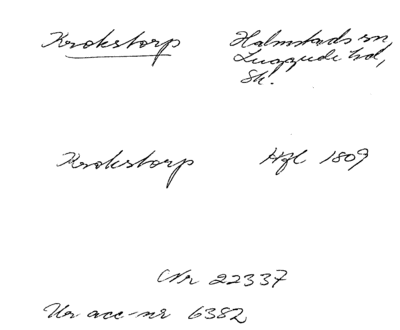 Krokstorp Halmstads sn,
Luggude hd,
Sk.
Krokstorp Hfl 1809
Nr 22337
Ur acc-nr 6382